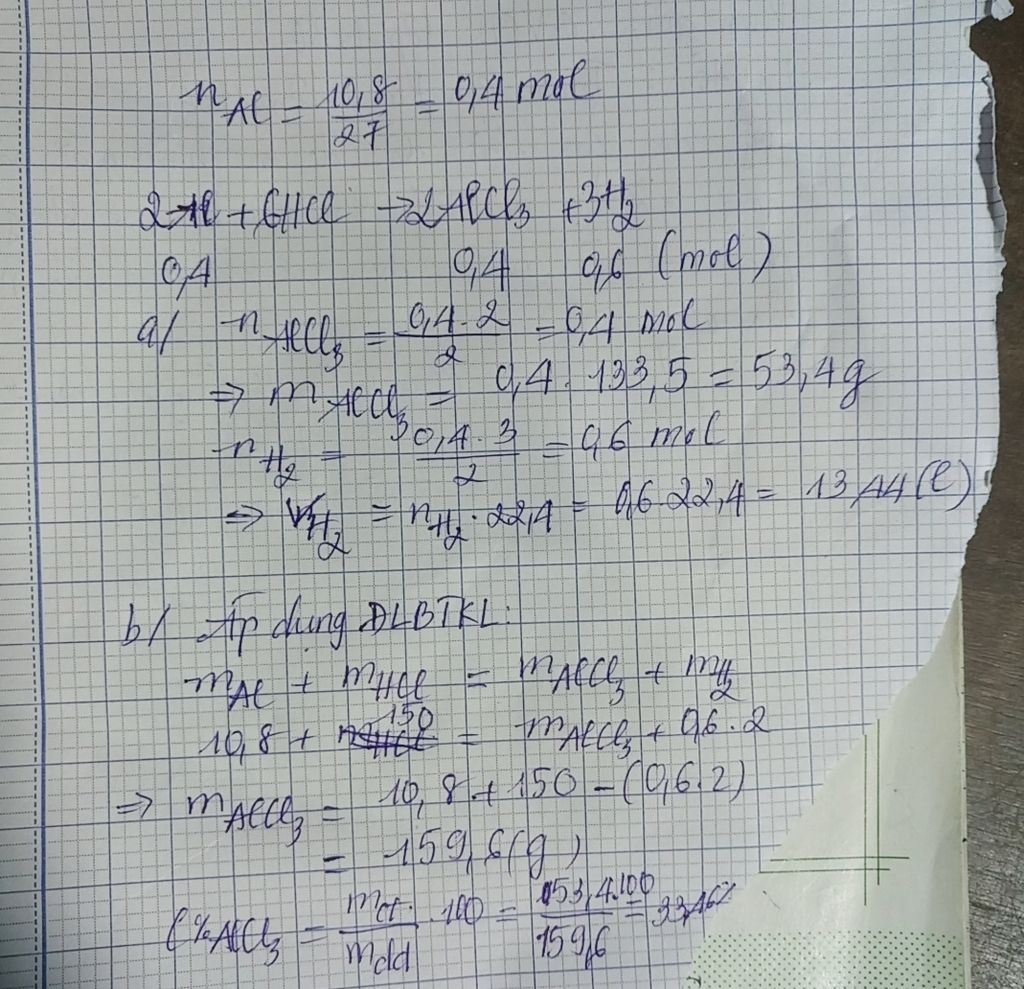 n_Al = 10,8/27 = 0,4 mol
2Al + 6HCl → 2AlCl₃ + 3H₂
0,4 0,4 0,6 (mol)
a/ n_AlCl₃ = 0,4.2/2 = 0,4 mol
⇒ m_AlCl₃ = 0,4.133,5 = 53,4g
n_H₂ = 0,4.3/2 = 0,6 mol
⇒ V_H₂ = n_H₂.22,4 = 0,6.22,4 = 13,44(l)
b/ Áp dụng ĐLBTKL:
m_Al + m_HCl = m_AlCl₃ + m_H₂
10,8 + 150 = m_AlCl₃ + 0,6.2
⇒ m_AlCl₃ = 10,8 + 150 - (0,6.2)
= 159,6(g)
C%AlCl₃ = m_ct/m_dd.100 = 53,4.100/159,6 = 33,46%